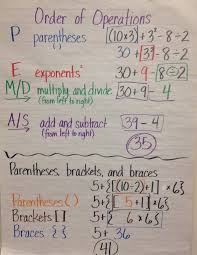 Order of Operations
P parentheses [(10x3)+3²-8÷2
30+3²-8÷2
E exponents² 30+9-8÷2
M/D multiply and divide 30+9-4
(from left to right)
A/S add and subtract 39-4
(from left to right)
35
Parentheses, brackets, and braces
5+{[(10-2)+1]×6}
Parentheses ( ) 5+{[ +1]×6}
Brackets [ ] 5+{ 6×6}
Braces { } 5+36
41